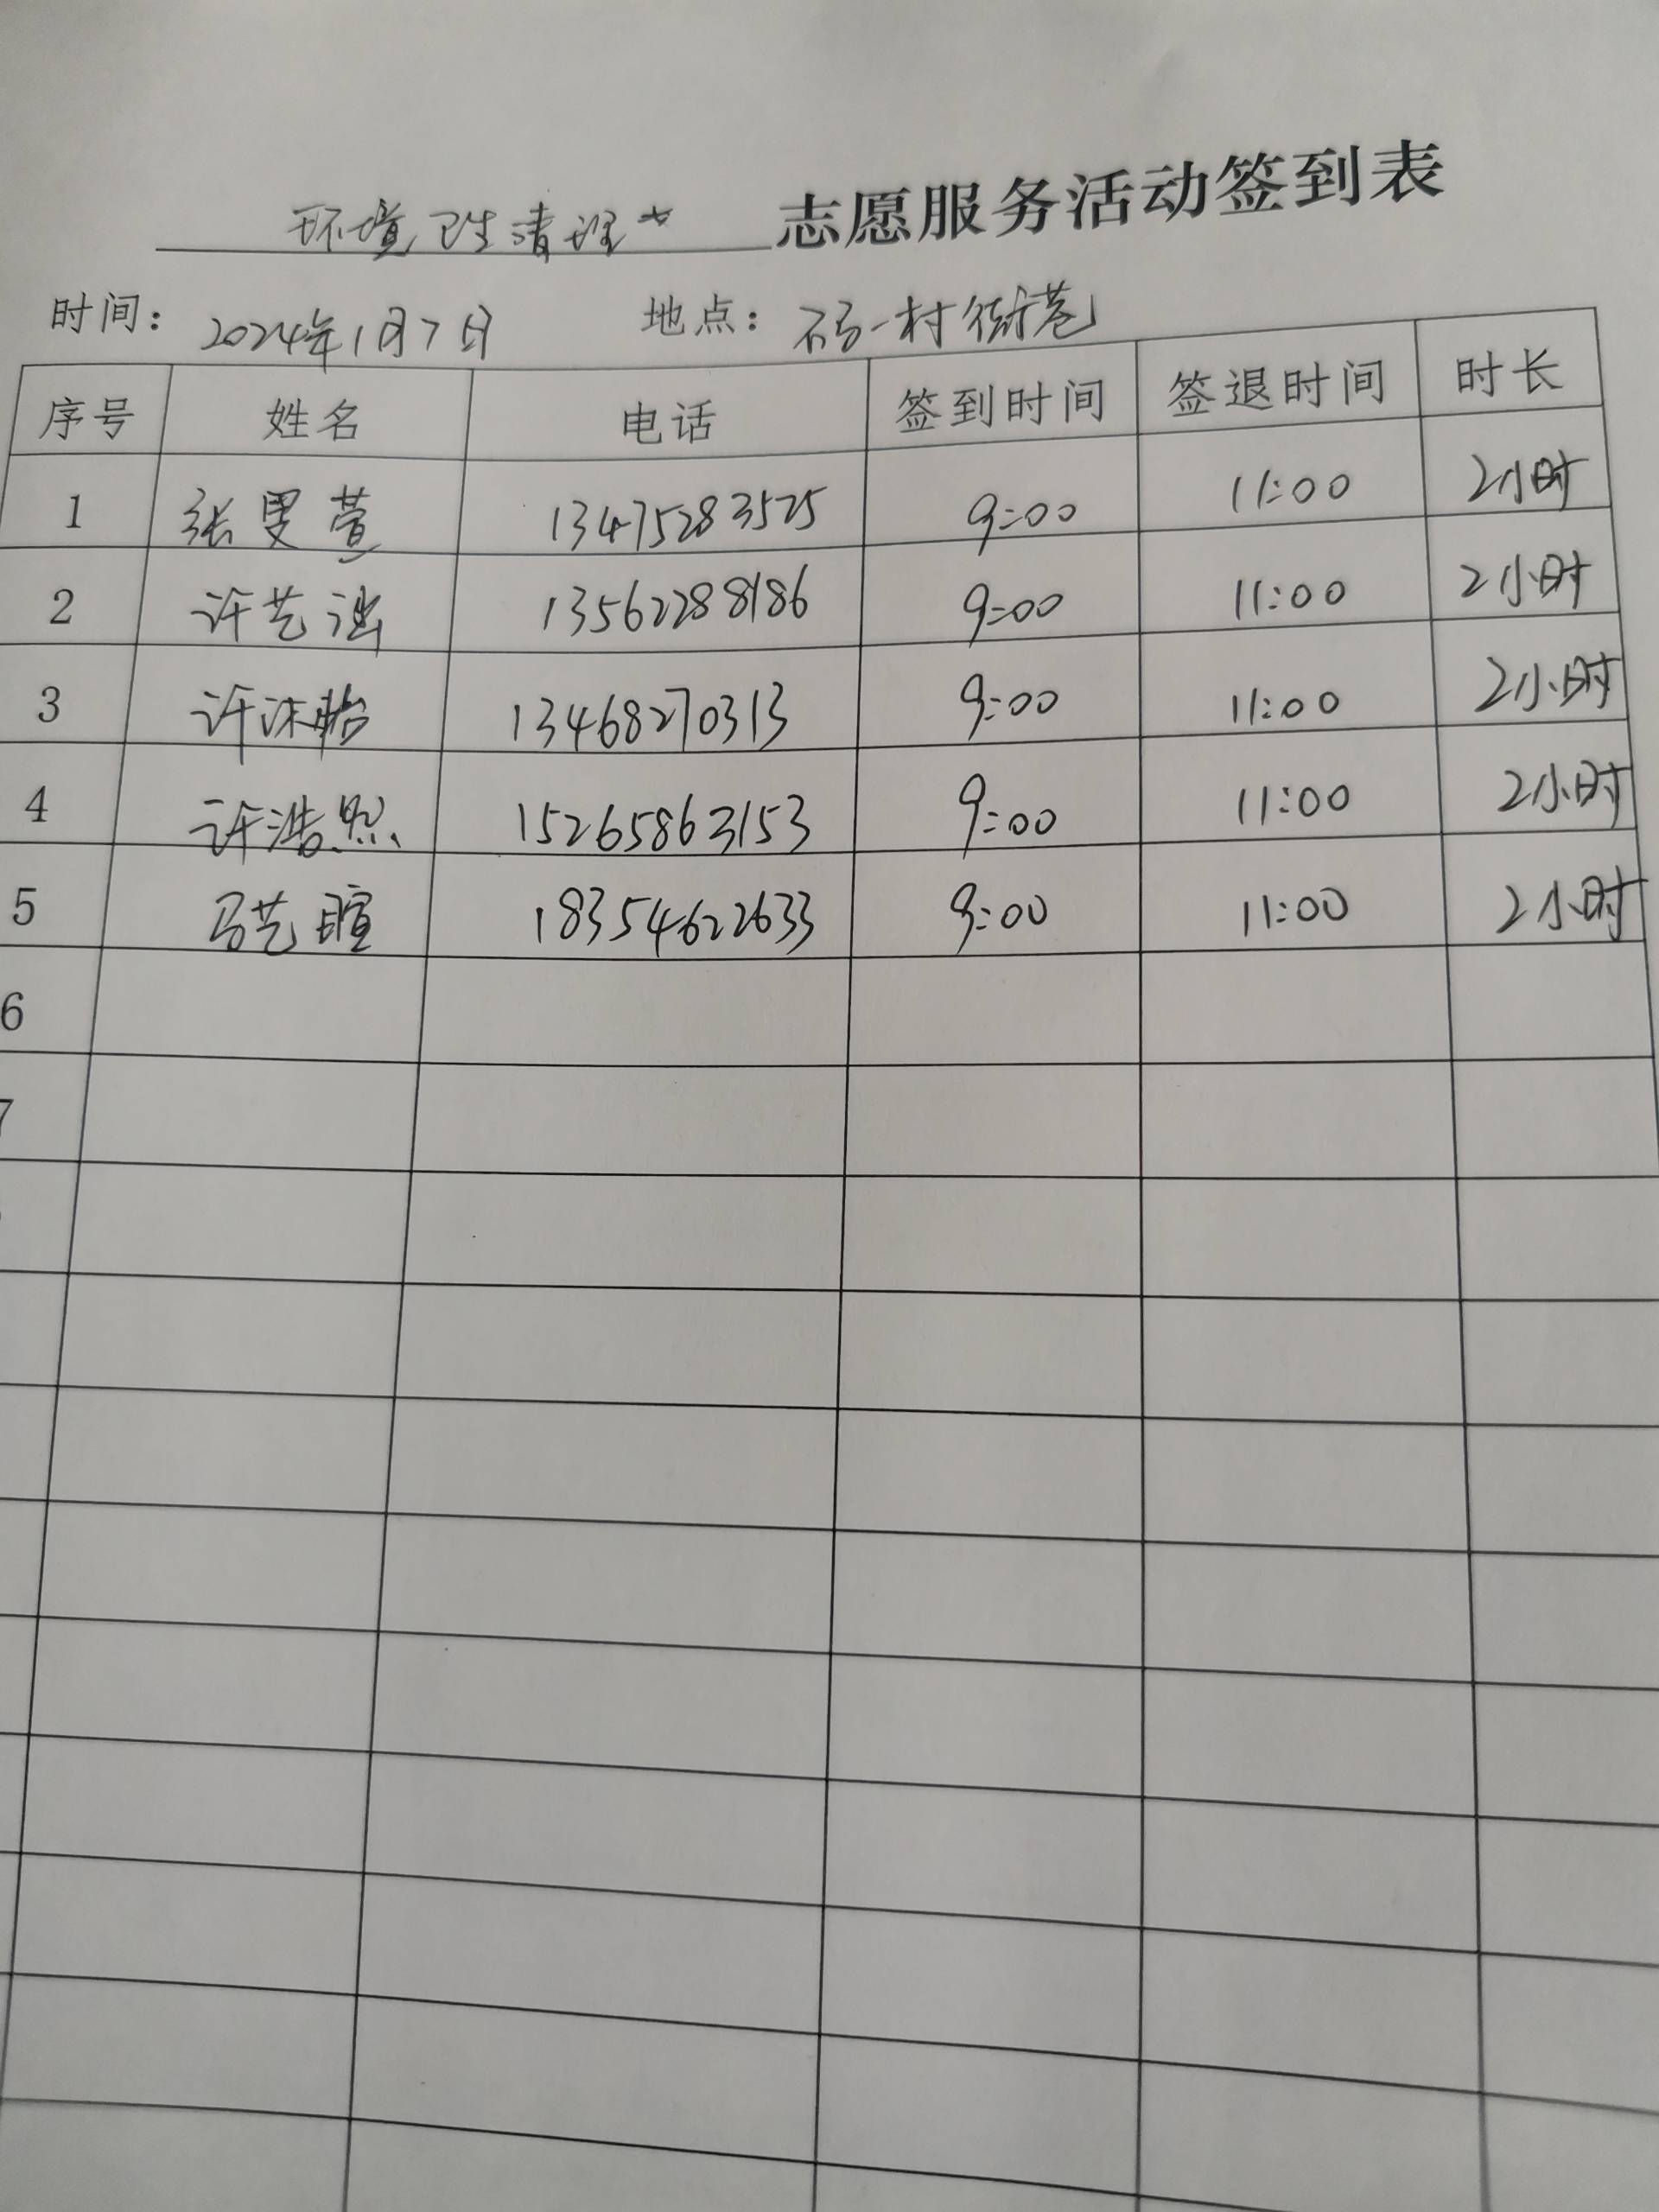 环境卫生清理 志愿服务活动签到表
时间: 2024年1月7日 地点: 石一村街巷
序号 姓名 电话 签到时间 签退时间 时长
1 张旻萱 13475283525 9:00 11:00 2小时
2 许艺涵 13562288186 9:00 11:00 2小时
3 许沐贻 13468270313 9:00 11:00 2小时
4 许浩然 15265863153 9:00 11:00 2小时
5 马艺暄 18354622633 9:00 11:00 2小时
6
7